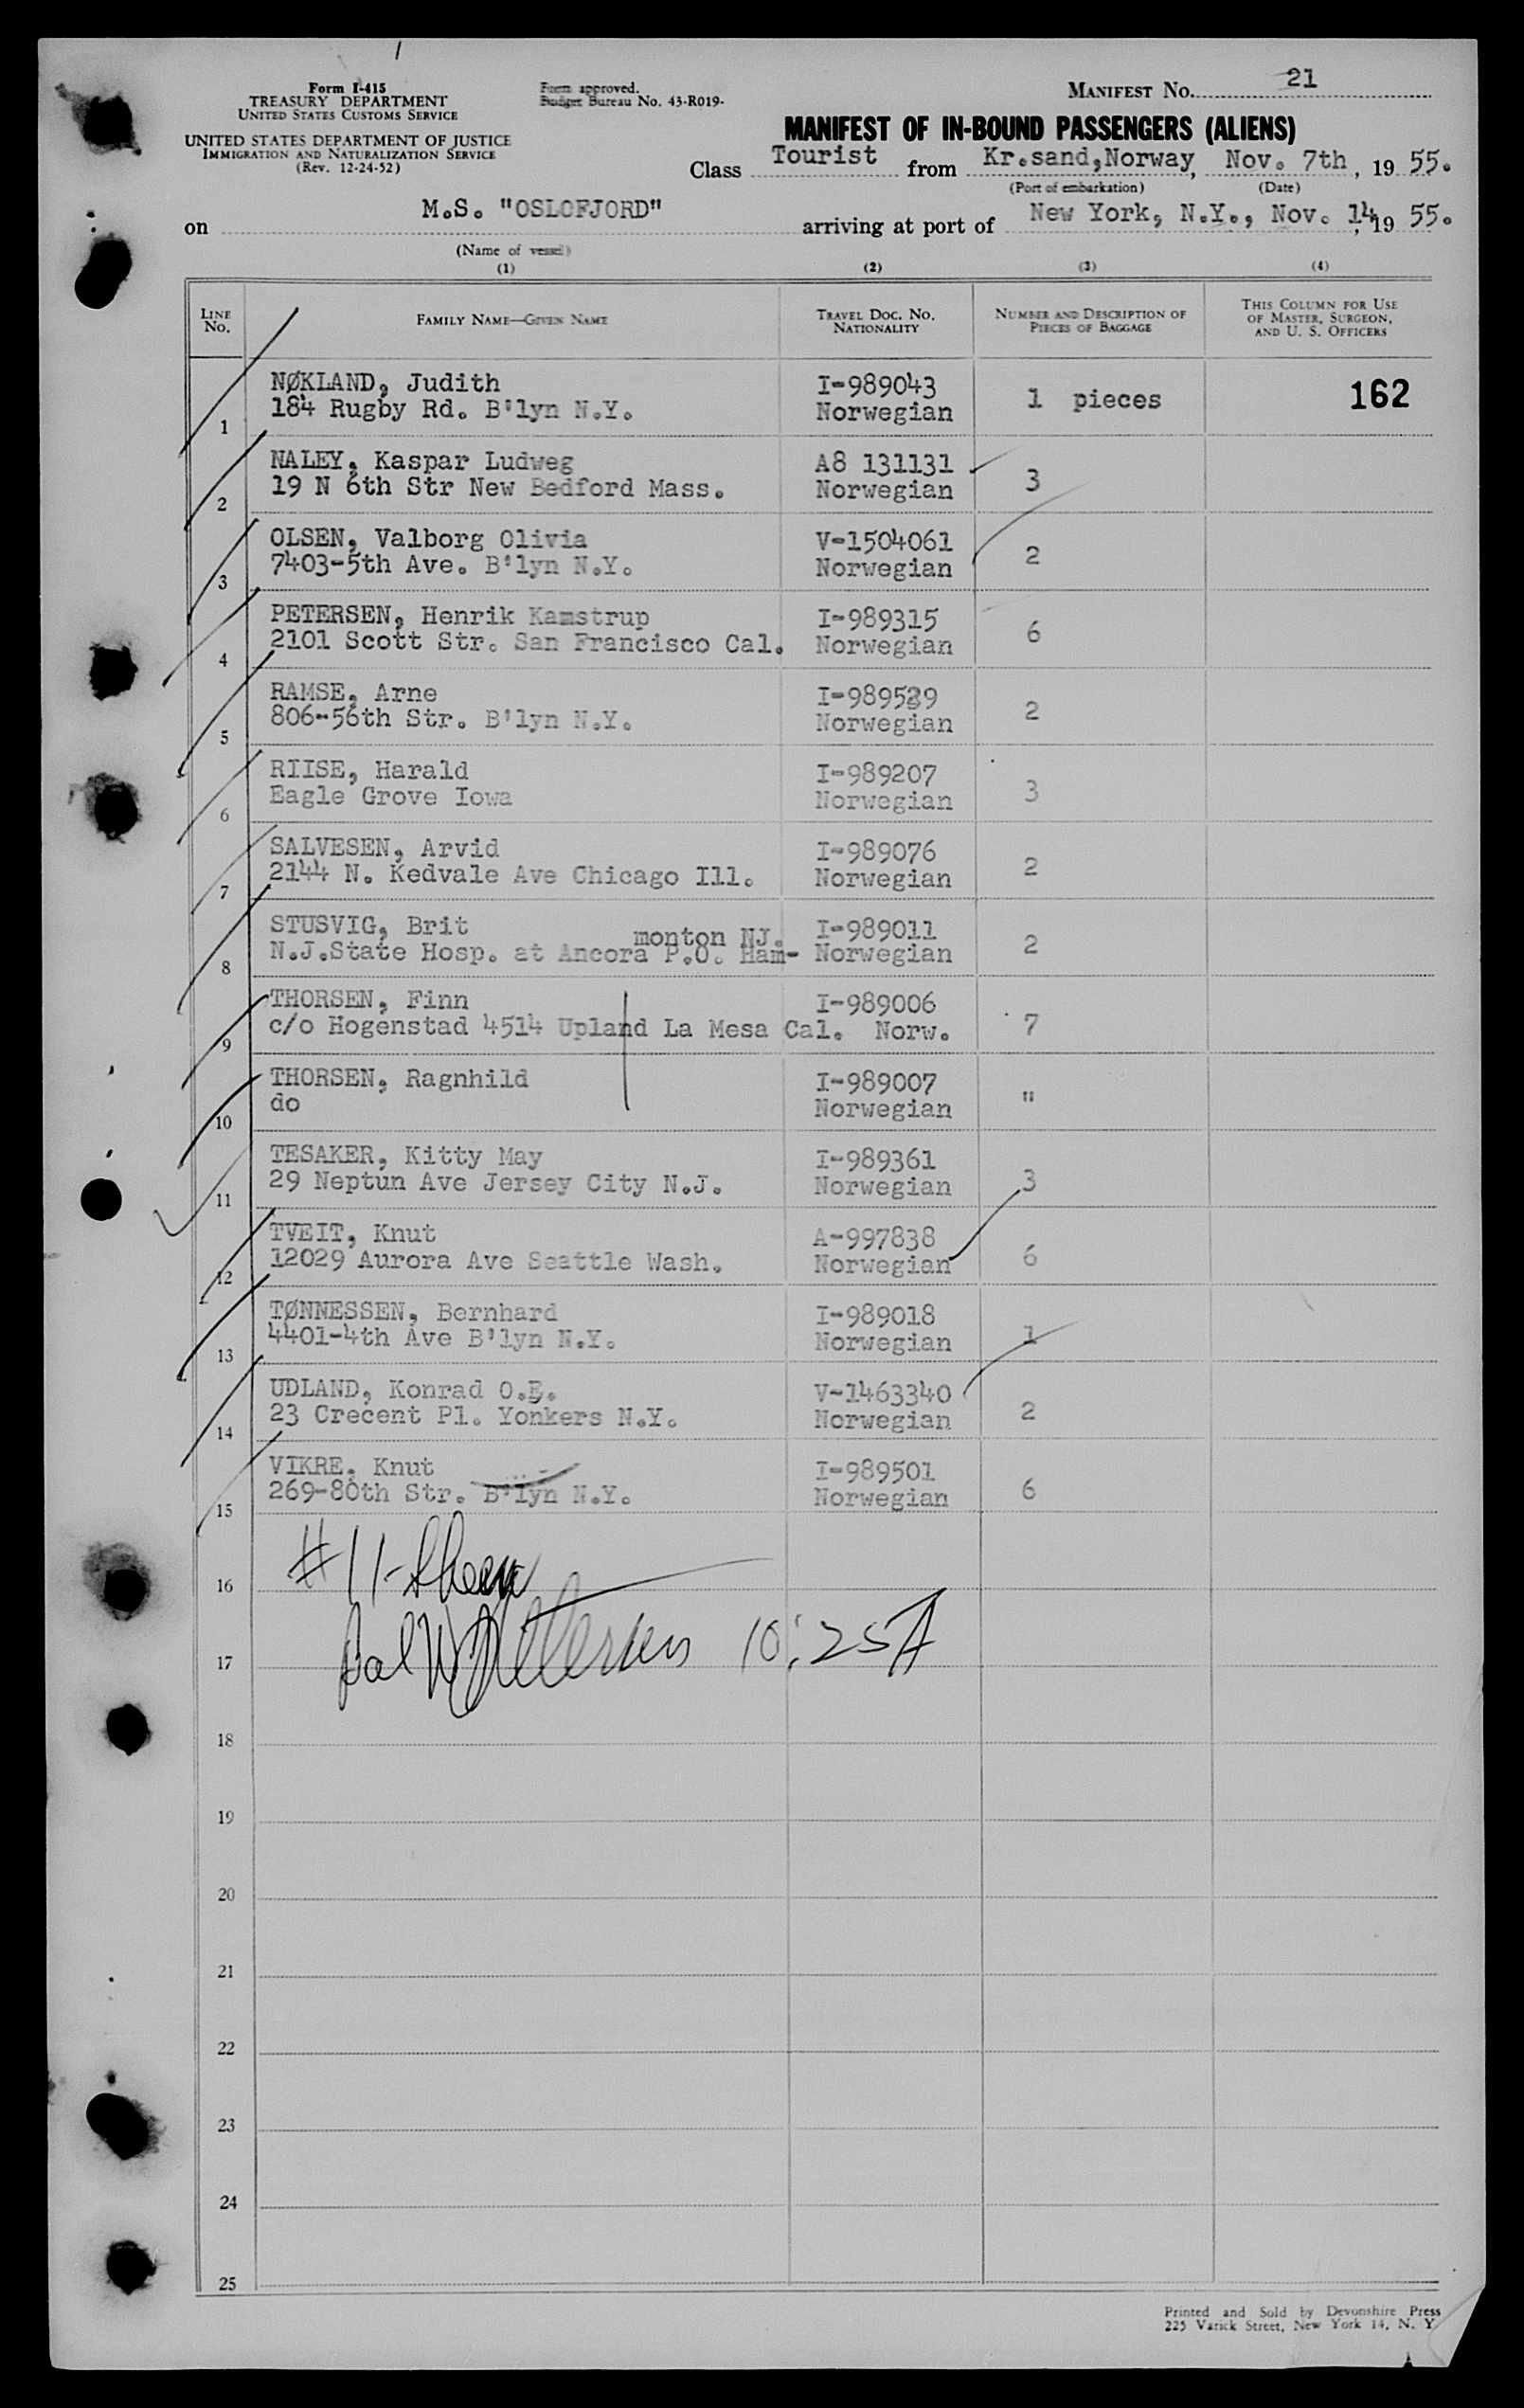 Form I-415
TREASURY DEPARTMENT
UNITED STATES CUSTOMS SERVICE
UNITED STATES DEPARTMENT OF JUSTICE
IMMIGRATION AND NATURALIZATION SERVICE
(Rev. 12-24-52)
Form approved.
Budget Bureau No. 43-R019-
MANIFEST No. 21
MANIFEST OF IN-BOUND PASSENGERS (ALIENS)
Class Tourist from Kr.sand,Norway, Nov. 7th, 19 55.
(Port of embarkation) (Date)
on M.S. "OSLOFJORD" arriving at port of New York, N.Y., Nov. 14, 19 55.
(Name of vessel)
(1) (2) (3) (4)
LINE No. FAMILY NAME—GIVEN NAME TRAVEL DOC. No. NATIONALITY NUMBER AND DESCRIPTION OF PIECES OF BAGGAGE THIS COLUMN FOR USE OF MASTER, SURGEON, AND U. S. OFFICERS
NØKLAND, Judith I-989043
1 184 Rugby Rd. B'lyn N.Y. Norwegian 1 pieces 162
NALEY, Kaspar Ludweg A8 131131
2 19 N 6th Str New Bedford Mass. Norwegian 3
OLSEN, Valborg Olivia V-1504061
3 7403-5th Ave. B'lyn N.Y. Norwegian 2
PETERSEN, Henrik Kamstrup I-989315
4 2101 Scott Str. San Francisco Cal. Norwegian 6
RAMSE, Arne
5 806-56th Str. B'lyn N.Y. Norwegian 2
RIISE, Harald I-989207
6 Eagle Grove Iowa Norwegian 3
SALVESEN, Arvid I-989076
7 2144 N. Kedvale Ave Chicago Ill. Norwegian 2
STUSVIG, Brit monton NJ. I-989011
8 N.J.State Hosp. at Ancora P.O. Ham- Norwegian 2
THORSEN, Finn I-989006
9 c/o Hogenstad 4514 Upland La Mesa Cal. Norw. 7
THORSEN, Ragnhild I-989007
10 do Norwegian "
TESAKER, Kitty May I-989361
11 29 Neptun Ave Jersey City N.J. Norwegian 3
TVEIT, Knut A-997838
12 12029 Aurora Ave Seattle Wash. Norwegian 6
TØNNESSEN, Bernhard I-989018
13 4401-4th Ave B'lyn N.Y. Norwegian 1
UDLAND, Konrad O.E. V-1463340
14 23 Crecent Pl. Yonkers N.Y. Norwegian 2
VIKRE, Knut I-989501
15 269-80th Str. B'lyn N.Y. Norwegian 6
#11-
16
10:25A
17
18
19
20
21
22
23
24
25
Printed and Sold by Devonshire Press
225 Varick Street, New York 14, N. Y.